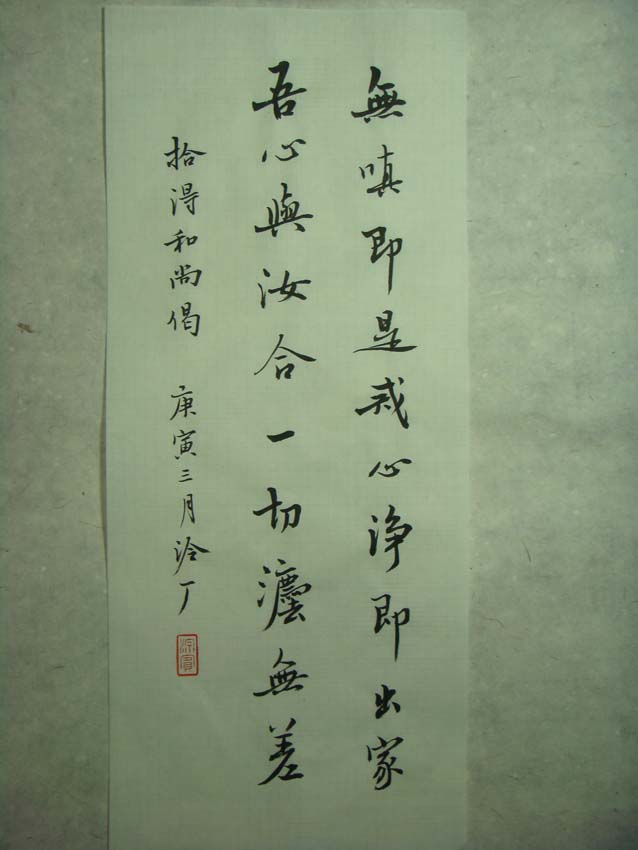 無嗔即是戒心淨即出家
吾心與汝合一切灋無差
拾得和尚偈 庚寅三月泠丁